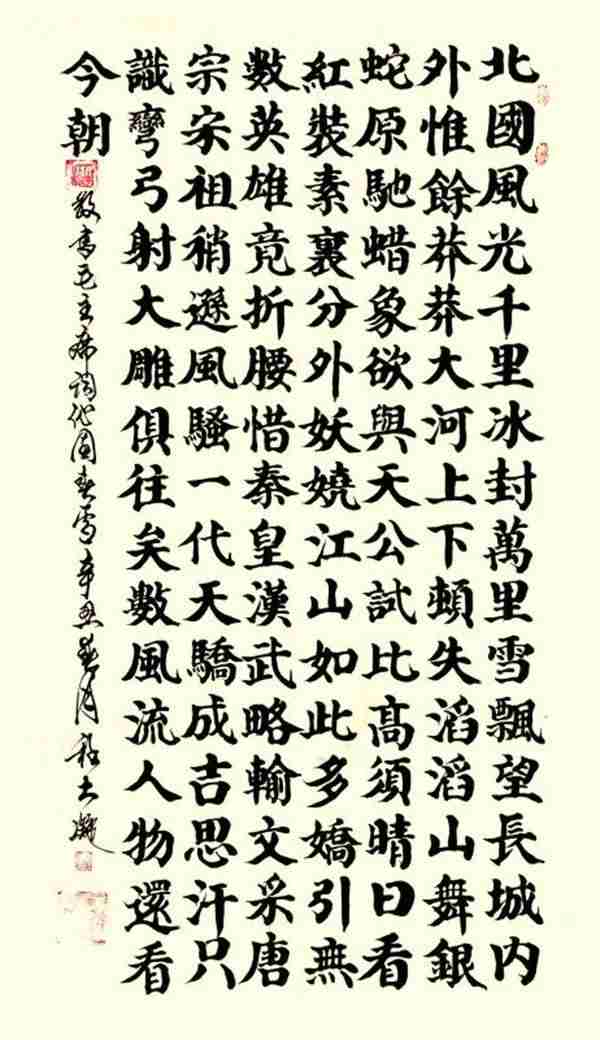 北國風光千里冰封萬里雪飄望長城内
外惟餘莽莽大河上下頓失滔滔山舞銀
蛇原馳蜡象欲與天公試比髙須晴日看
紅裝素裏分外妖嬈江山如此多嬌引無
數英雄竟折腰惜秦皇漢武略輸文采唐
宗宋祖稍遜風騷一代天驕成吉思汗只
識彎弓射大雕俱往矣數風流人物還看
今朝
敬書毛主席詞沁園春雪辛春月